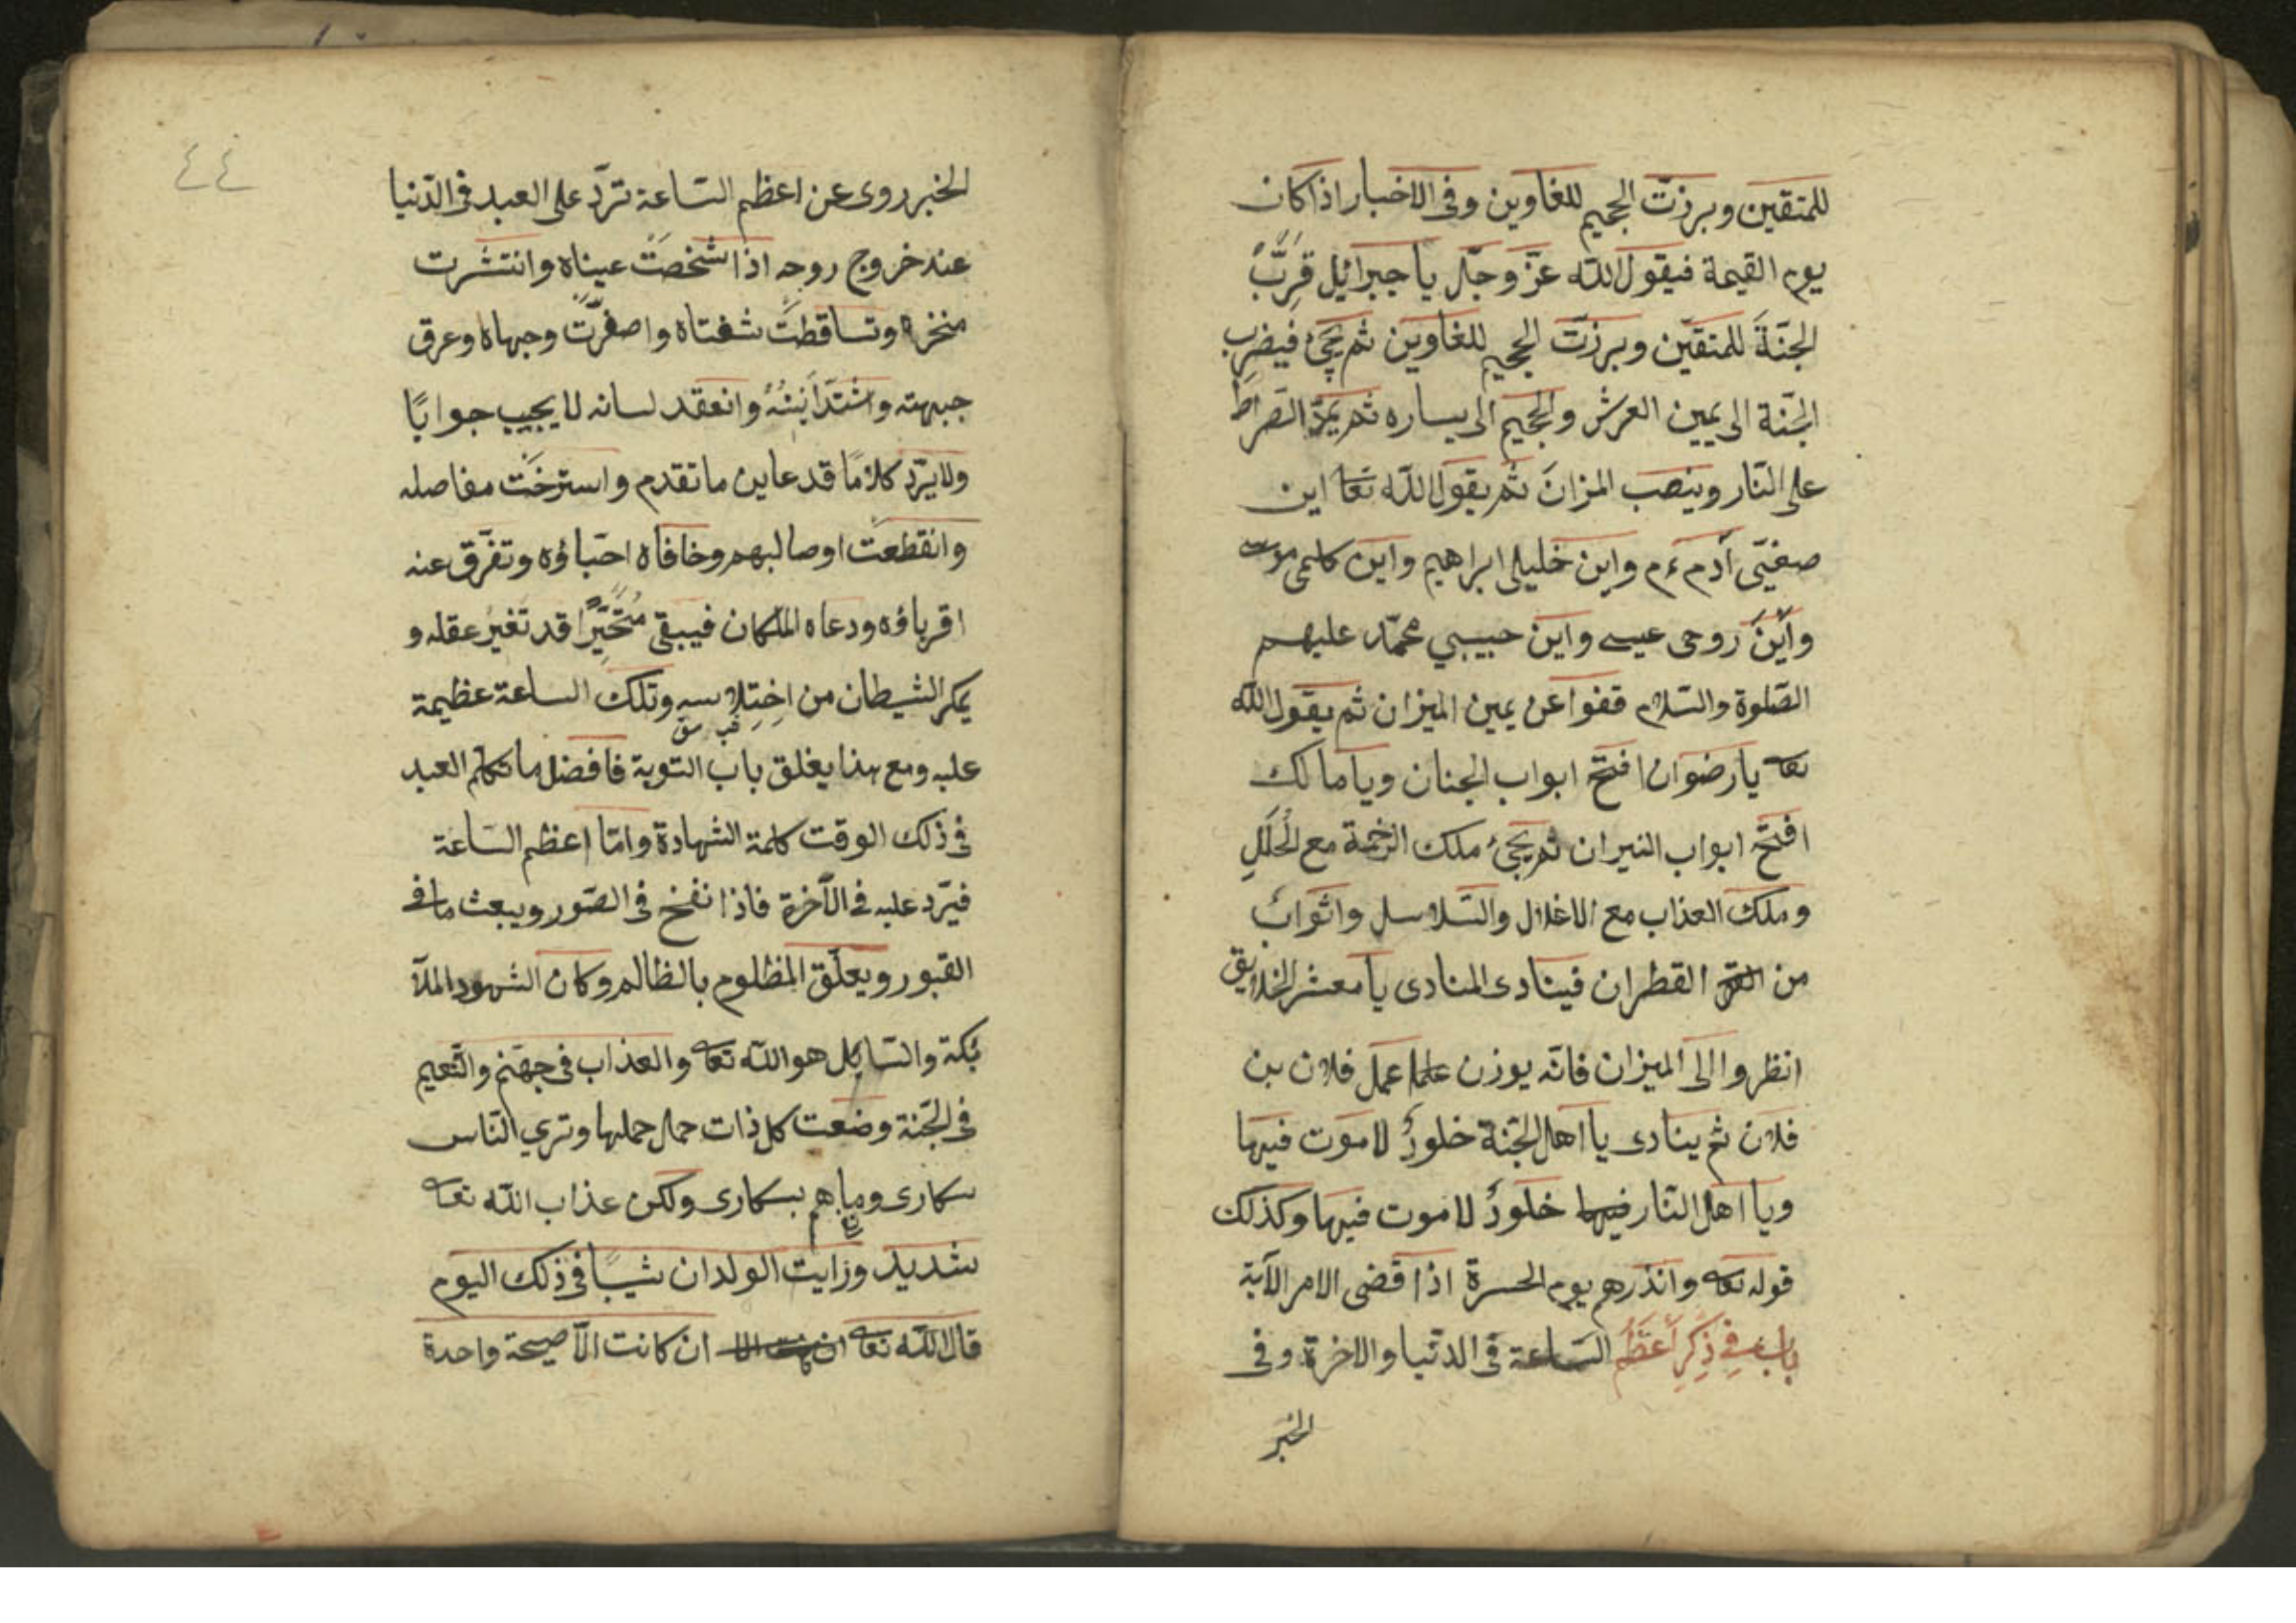 للمتقين وبرزت الجحيم للغاوين وفى الاخبار اذا كان
يوم القيمة فيقول الله عزّ وجلّ يا جبرائيل قرّب
الجنّة للمتقين وبرزت الجحيم للغاوين ثم يجئ فيضرب
الجنّة الى يمين العرش والجحيم الى يساره ثم يمدّ الصّراط
على النّار وينصب المزان ثم يقول الله تعا اين
صفيّى آدم ءم واين خليلى ابراهيم واين كليمى موسى
وأين روحى عيسى واين حبيبي محمّد عليهم
الصّلوة والسّلام قفوا عن يمين الميزان ثم يقول الله
تعا يا رضوان افتح ابواب الجنان ويا مالك
افتح ابواب النيران ثم يجئ ملك الرحمة مع الحلل
وملك العذاب مع الاغلال والسّلاسل واثواب
من القطران فينادى المنادى يا معشر الخلايق
انظروا الى الميزان فانّه يوزن عمل فلان بن
فلان ثم ينادى يا اهل الجنّة خلودٌ لا موت فيها
ويا اهل النّار فيها خلودٌ لا موت فيها وكذلك
قوله تعا وانذرهم يوم الحسرة اذا قضى الامر الآية
باب فى ذكر أعظم السّاعة فى الدنّيا والاخرة وفى
الخبر
٤٤
الخبر روى عن اعظم السّاعة تردّ على العبد فى الدّنيا
عند خروج روحه اذا شخصت عيناه وانتشرت
منخراه وتساقطت شفتاه واصفرّت وجهاه وعرق
جبهته واشتدّ انينه وانعقد لسانه لا يجيب جوابًا
ولا يردّ كلامًا قد عاين ما تقدم واسترخت مفاصله
وانقطعت اوصالهم وخافاه احبّاؤه وتفرّق عنه
اقرباؤه ودعاه الملكان فيبقى متحيّرًا قد تغير عقله و
يمكر الشيطان من اختلاسه وتلك الساعة عظيمة
عليه ومع هذا يغلق باب التوبة فافضل ما تكلم العبد
فى ذلك الوقت كلمة الشهادة وامّا اعظم السّاعة
فيردّ عليه فى الآخرة فاذا نفخ فى الصّور ويبعث ما فى
القبور ويعلّق المظلوم بالظالم وكان الشهود الملآ
ئكة والسّايل هو الله تعا والعذاب فى جهنّم والنّعيم
فى الجنّة وضعت كل ذات حمل حملها وتري النّاس
سكارى وما هم بسكارى ولكن عذاب الله تعا
شديد ورايت الولدان شيبًا فى ذلك اليوم
قال الله تعا ان كانت الّا صيحة واحدة